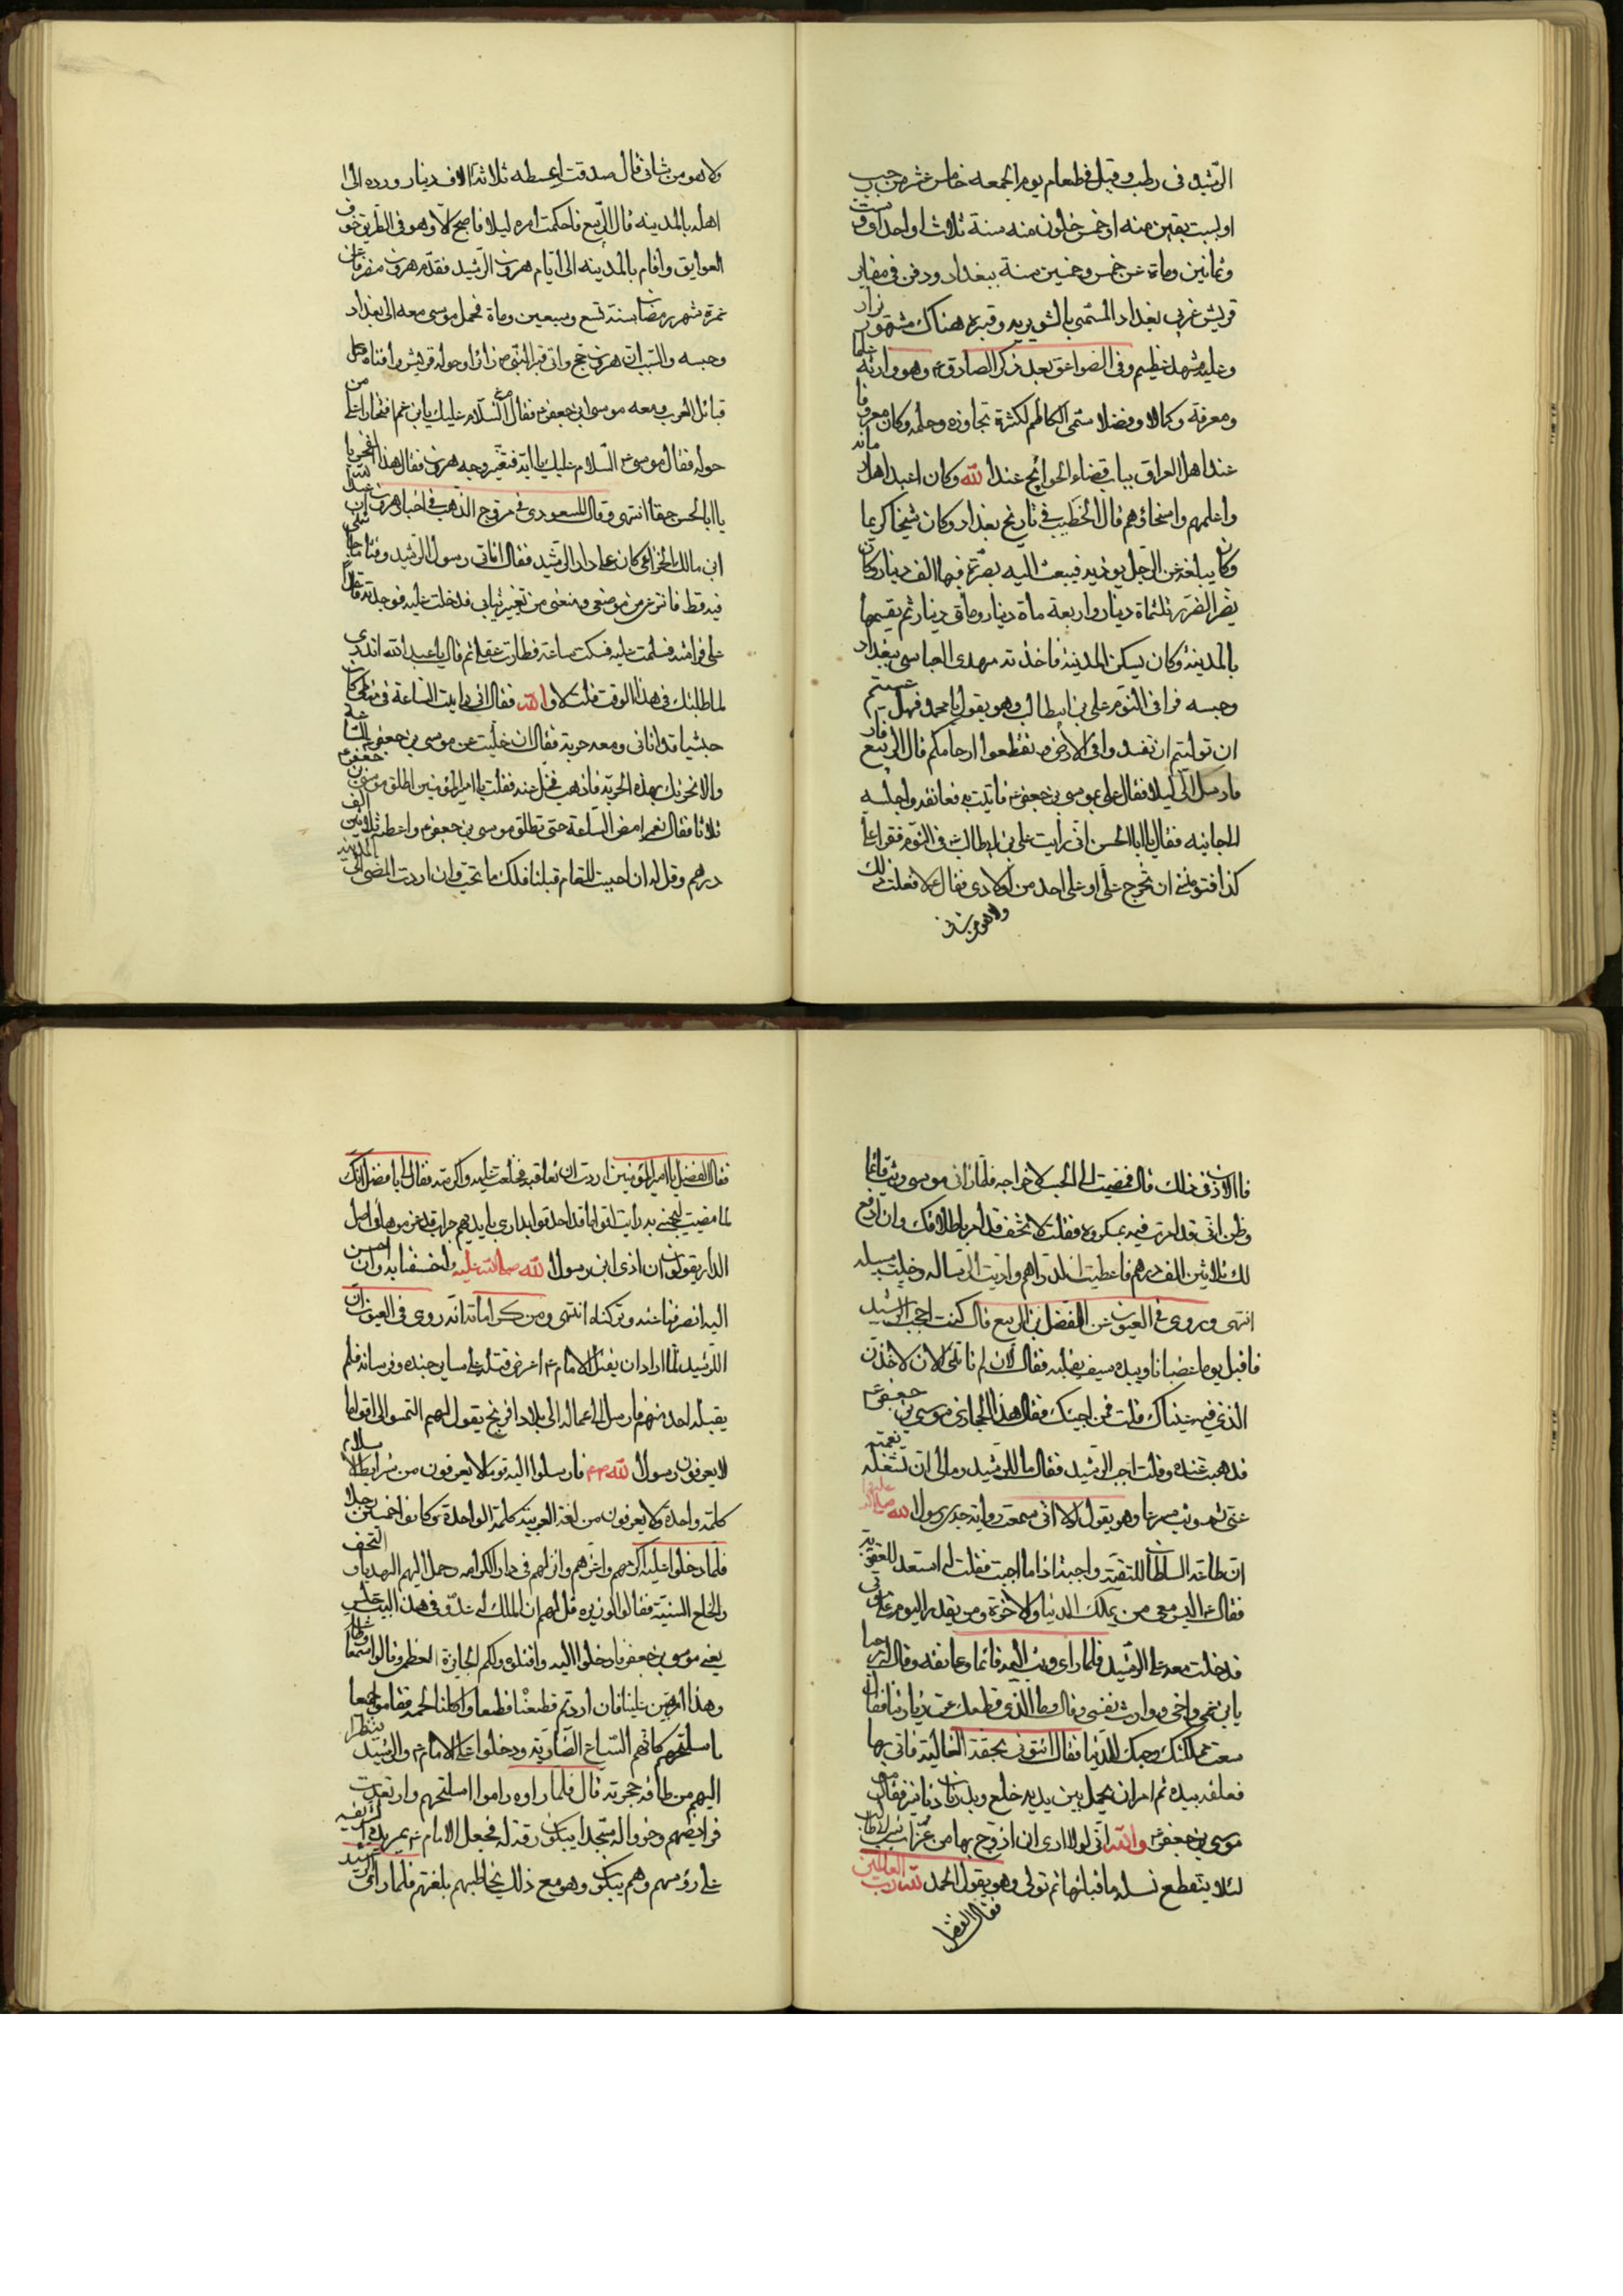 الرشید فی رطب وقیل فی طعام یوم الجمعه خامس عشر من رجب
او لست بقین منه او خمس خلون منه سنة ثلاث او احدی او ست
وثمانین ومائة عن خمس وخمسین سنة ببغداد ودفن فی مقابر
قریش غربی بغداد المسمی بالشونیزیه وقبره هناک مشهور یزار
وعلیه مشهد عظیم وفی الصواعق بعد ذکر الصادق ع وهو وارثه علما
ومعرفة وکمالا وفضلا سمی الکاظم لکثرة تجاوزه وحلمه وکان معروفا
عند اهل العراق بباب قضاء الحوائج عند الله وکان اعبد اهل زمانه
واعلمهم واسخاهم قال الخطیب فی تاریخ بغداد وکان شیخا کریما
وکان یبلغه عن الرجل یوذیه فیبعث الیه بصرة فیها الف دینار وکان
یصر الصرر ثلثمائة دینار واربعة مائة دینار ومائتی دینار ثم یقسمها
بالمدینة وکان یسکن المدینة فاخذته مهدی العباسی ببغداد
وحبسه فرای فی النوم علی بن ابیطالب وهو یقول یا محمد فهل عسیتم
ان تولیتم ان تفسدوا فی الارض وتقطعوا ارحامکم قال الربیع
فارسل الی لیلا فقال علی بموسی بن جعفر ع فاتیت به فعانقه واجلسه
الی جانبه فقال یا ابا الحسن انی رایت علی بن ابیطالب فی النوم فقرا علی
کذا فتومننی ان تخرج علی او علی احد من اولادی فقال لا فعلت ذلک
ولا هو من شانی
ولا هو من شانی قال صدقت اعطه ثلاثة الاف دینار ورده الی
اهله بالمدینه قال الربیع فاحکمت امره لیلا فاصبح الا وهو فی الطریق خوف
العوایق واقام بالمدینه الی ایام هرون الرشید فقدم هرون منصرفا من
عمرة شهر رمضان سنة تسع وسبعین ومائة فحمل موسی معه الی بغداد
وحبسه والسبب ان هرون حج واتی قبر النبی ص زائرا وحوله قریش وافناء
قبائل العرب ومعه موسی ابن جعفر ع فقال السلام علیک یابن عم افتخارا علی من
حوله فقال موسی ع السلام علیک یا ابه فتغیر وجه هرون فقال هذا الفخر یا
یا ابا الحسن حقا انتهی وقال المسعودی فی مروج الذهب فی اخبار هرون ان عبد الله
ابن مالک الخزاعی کان علی دار الرشید فقال اتانی رسول الرشید وقتا ما جاءنی
فیه قط فانتزعنی من موضعی ومنعنی من تغییر ثیابی فدخلت علیه فوجدته قاعدا
علی فراشه فسلمت علیه فسکت ساعة فطارت عقلی ثم قال یا عبد الله اتدری
لما طلبتک فی هذا الوقت قلت لا والله فقال انی رایت الساعة فی منامی کان
حبشیا قد اتانی ومعه حربة فقال ان خلیت عن موسی بن جعفر الساعة
والا نحرتک بهذه الحربة فاذهب فخل عنه فقلت یا امیر المومنین اطلق موسی بن جعفر ع
ثلاثا فقال نعم امض الساعة حتی تطلق موسی بن جعفر ع واعطه ثلاثین الف
درهم وقل له ان احببت المقام قبلنا فلک ما تحب وان اردت المضی الی المدینة
فالاذن فی ذلک قال فمضیت الی الحبس لاخراجه فلما رانی موسی وثب قائما
وظن انی قد امرت فیه بمکروه فقلت لا تخف قد امر باطلاقک وان ادفع
لک ثلاثین الف درهم فاعطیت له الدراهم وادیت الرسالة وخلیت سبیله
انتهی وروی فی العیون عن الفضل بن الربیع قال کنت احجب الرشید
فاقبل یوما غضبانا وبیده سیف یقلبه فقال لان لم تاتنی الان لاخذن
الذی فیه عیناک قلت فمن اجیئک فقال هذا الحجازی موسی بن جعفر ع
فذهبت عنده وقلت اجب الرشید فقال ما للرشید ومالی اتشغله نعمته
عنی ثم وثب مسرعا وهو یقول لولا انی سمعت روایة جدی رسول الله صلی الله علیه
ان طاعة السلطان للتقیة واجبة اذا ما اجبت فقلت له استعد للعقوبة
فقال ع الیس معی من یملک الدنیا والاخرة ومن یقدر الیوم علی
فدخلت معه علی الرشید فلما رای وثب الیه قائما وعانقه وقال مرحبا
یابن عمی واخی ووارث نفسی وقال وما الذی قطعک عن زیارتنا فقال
سعت مملکتک وحبک للدنیا فقال ائتونی بحقة الغالیة فاتی بها
فعلفه بیده ثم امر ان یحمل بین یدیه خلع وبدرتان دنانیر فقال
موسی بن جعفر ع والله انی لولا اری ان ازوج بها من عزاب بنی ابیطالب
لئلا ینقطع نسله ما قبلتها ثم تولی وهو یقول الحمد لله رب العالمین
فقال الفضل
فقال الفضل یا امیر المومنین اردت ان تعاقبه فخلعت علیه واکرمته فقال لی یا فضل انک
لما مضیت لتجیئنی به رایت اقواما قد احدقوا بداری بایدیهم حراب قد غرسوها فی اصل
الدار یقولون ان اذی ابن رسول الله صلی الله علیه واله خسفنا به وان احسن
الیه انصرفنا عنه وترکناه انتهی ومن کراماته انه روی فی العیون ان
الرشید لما اراد ان یقتل الامام ع اعرض قتله علی سایر جنده وفرسانه فلم
یقبله احد منهم فارسل الی عماله الی بلاد افرنج یقول لهم التمسوا لی اقواما
لا یعرفون رسول الله ص فارسلوا الیه قوما لا یعرفون من شرایط الاسلام
کلمة واحدة ولا یعرفون من لغة العربیة کلمة الواحدة وکانوا خمسین رجلا
فلما دخلوا علیه اکرمهم واعزهم وانزلهم فی دار الکرامه وحمل الیهم الهدیا والتحف
والخلع السنیة فقالوا لوزیره قل لهم ان الملک له عدو فی هذا البیت
یعنی موسی بن جعفر فادخلوا الیه واقتلوه ولکم الجایزة العظمی وقالوا سمعا وطاعة
وهذا امر هین علینا فان اردتم قطعنا قطعا واکلنا لحمه فقاموا جمیعا
باسلحتهم کانهم السباع الضاریة ودخلوا علی الامام ع والرشید ینظر
الیهم من طاقة حجرته قال فلما راوه راموا اسلحتهم وارتعدت
فرائصهم وخروا له سجدا یبکون رقة له فجعل الامام ع یمر یده الشریفة
علی رؤسهم وهم یبکون وهو مع ذلک یخاطبهم بلغتهم فلما رای الرشید